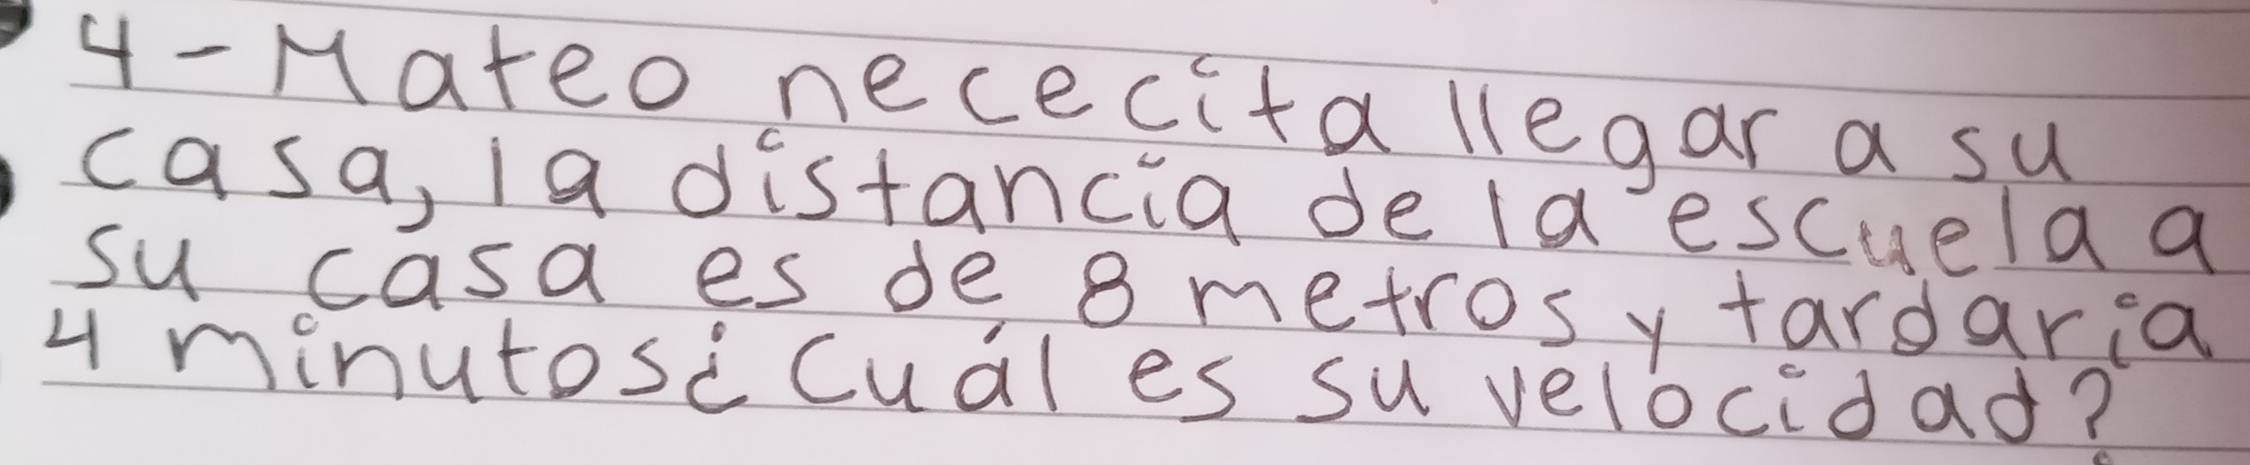 4-Mateo nececita llegar a su
casa, la distancia de la escuela a
su casa es de 8 metros y tardaria
4 minutos¿ Cuál es su velocidad?